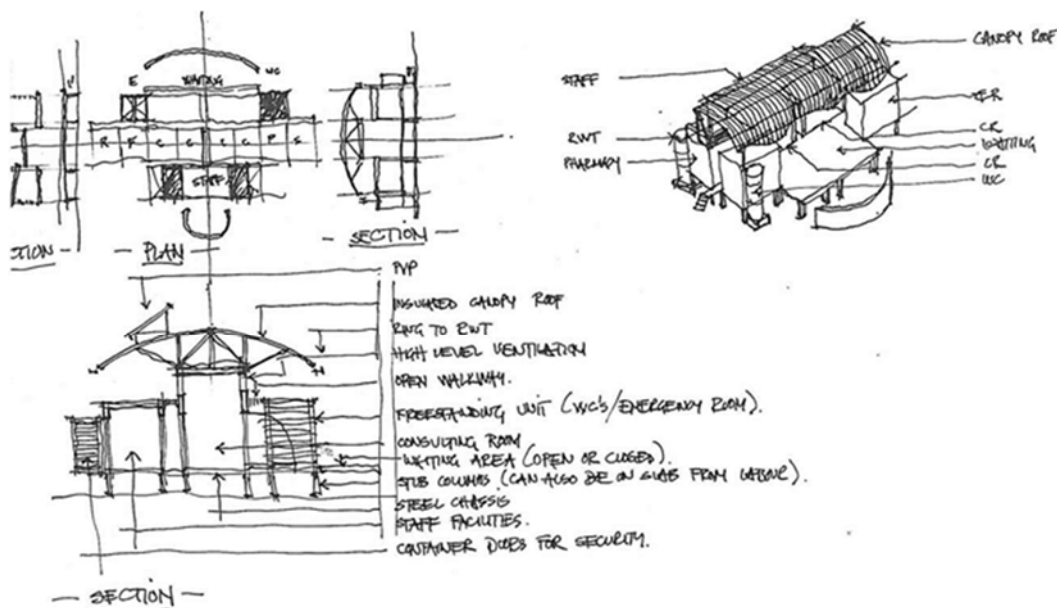 E
WAITING
WC
R
P
C
C
C
C
P
S
STAFF
STION
PLAN
SECTION
CANOPY ROOF
STAFF
ER
RWT
CR
WAITING
PHARMACY
CR
WC
PVP
INSULATED CANOPY ROOF
RWG TO RWT
HIGH LEVEL VENTILATION
OPEN WALKWAY.
FREESTANDING UNIT (WC'S/EMERGENCY ROOM).
CONSULTING ROOM
WAITING AREA (OPEN OR CLOSED).
STUB COLUMNS (CAN ALSO BE ON SLAB FROM LABOUR).
STEEL CHASSIS
STAFF FACILITIES.
CONTAINER DOORS FOR SECURITY.
SECTION